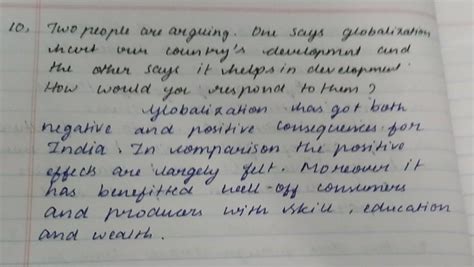 10. Two people are arguing. One says globalization
hurt our country's development and
the other says it helps in development.
How would you respond to them?
Globalization has got both
negative and positive consequences for
India. In comparison the positive
effects are largely felt. Moreover it
has benefitted well-off consumers
and producers with skill, education
and wealth.